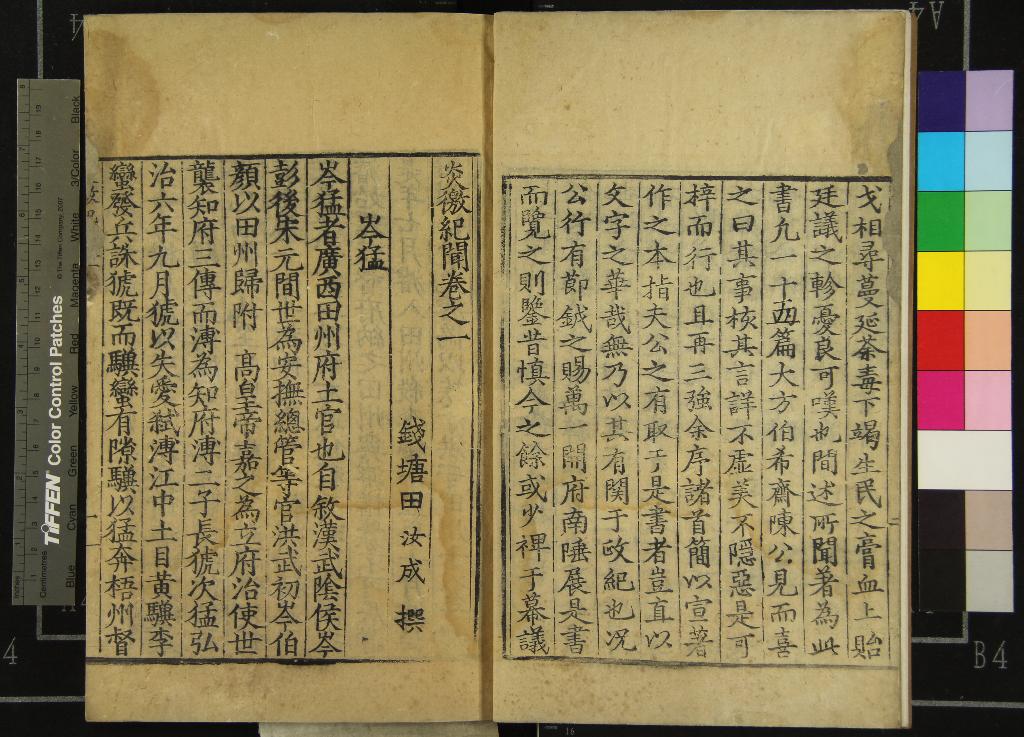 戈相尋蔓延荼毒下竭生民之膏血上貽
廷議之軫憂良可嘆也間述所聞著為此
書凡一十四篇大方伯希齋陳公見而喜
之曰其事核其言詳不虛美不隱惡是可
梓而行也且再三強余序諸首簡以宣著
作之本指夫公之有取于是書者豈直以
文字之華哉無乃以其有関于政紀也况
公行有節鉞之賜萬一開府南陲展是書
而覽之則鑒昔慎今之餘或少裨于幕議
炎徼紀聞卷之一
錢塘田汝成撰
岑猛
岑猛者廣西田州府土官也自敘漢武陰侯岑
彭後宋元間世為安撫總管等官洪武初岑伯
顏以田州歸附 高皇帝嘉之為立府治使世
襲知府三傳而溥為知府溥二子長猇次猛弘
治六年九月猇以失愛弑溥江中土目黃驥李
蠻發兵誅猇既而驥蠻有隙驥以猛奔梧州督
TIFFEN Color Control Patches
© The Tiffen Company, 2007
Blue
Cyan
Green
Yellow
Red
Magenta
White
3/Color
Black
Inches
Centimetres
B4
4
A4